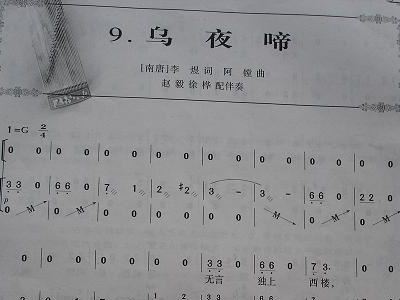 9. 乌 夜 啼
[南唐]李 煜 词 阿 镗 曲
赵 毅 徐 桦 配伴奏
1=G 2/4
0 0 0 0 0 0 0 0 0 0 0 0 0 0 0 0
3 3 0 6 6 0 7 1 2 #2 3 - 3 - 6 6 0 2 2 0
p
0 M 0 M 0 0 0 0 0 0 0 0 0 M 0
0 0 0 0 0 0 3 3 0 6 6 0 7 3.
无言 独上 西楼,